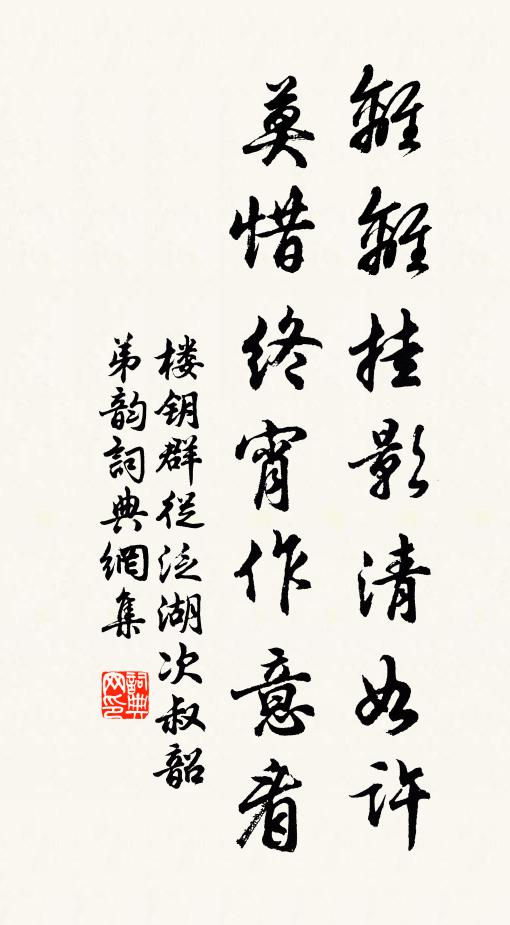 離離挂影清如許
莫惜終宵作意看
楼钥群從泛湖次叔韶
弟韵詞典網集
詞典网印